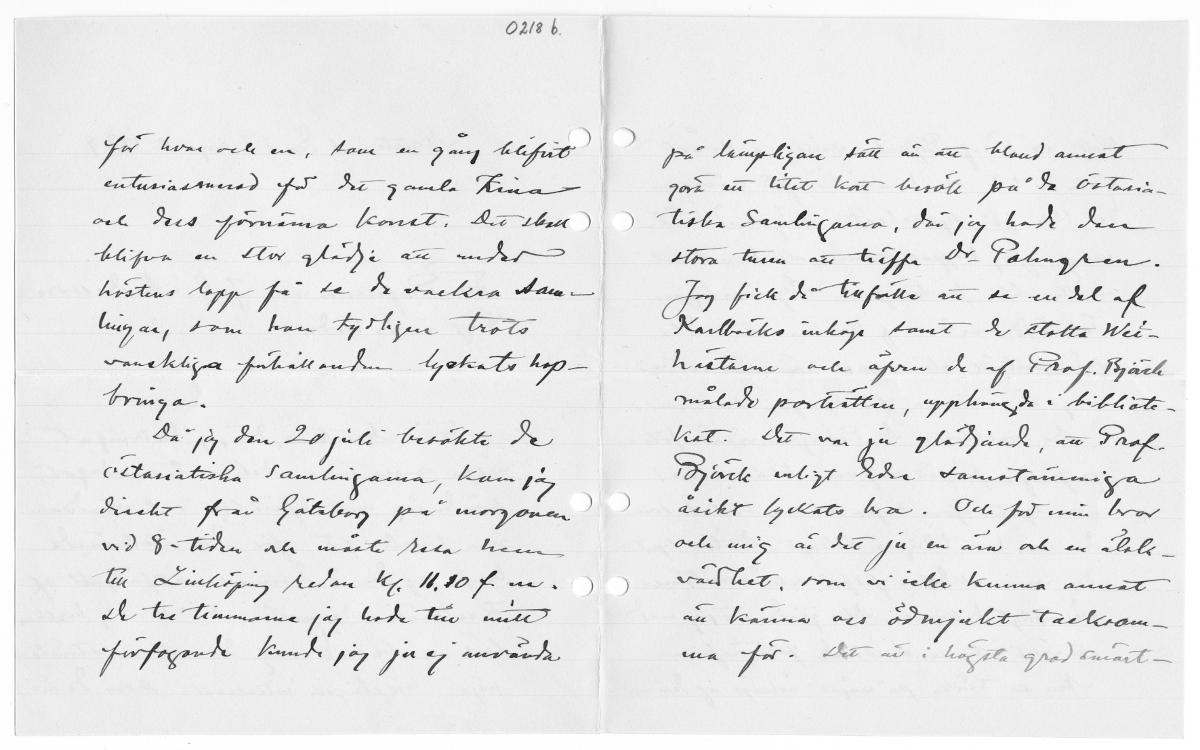 0218 b.
för hvar och en, som en gång blifvit
entusiasmerad för det gamla Kina
och dess förnäma konst. Det skall
blifva en stor glädje att under
höstens lopp få se de vackra sam-
lingar, som han tydligen trots
vanskliga förhållanden lyckats hop-
bringa.
Då jag den 20 juli besökte de
östasiatiska samlingarna, kom jag
direkt från Göteborg på morgonen
vid 8-tiden och måste resa hem
till Linköping redan kl. 11.10 f m.
De tre timmarna jag hade till mitt
förfogande kunde jag ju ej använda
på lämpligare sätt än att bland annat
göra ett litet kort besök på de östasia-
tiska Samlingarna, där jag hade den
stora turen att träffa Dr. Palmgren.
Jag fick då tillfälle att se en del af
Karlbecks inköp samt de stolta Wei-
hästarne och äfven de af Prof. Björck
målade porträtten, upphängda i bibliote-
ket. Det var ju glädjande, att Prof.
Björck enligt Eder samstämmiga
åsikt lyckats bra. Och för min bror
och mig är det ju en ära och en älsk-
värdhet, som vi icke kunna annat
än känna oss ödmjukt tacksam-
ma för. Det är i högsta grad smärt-